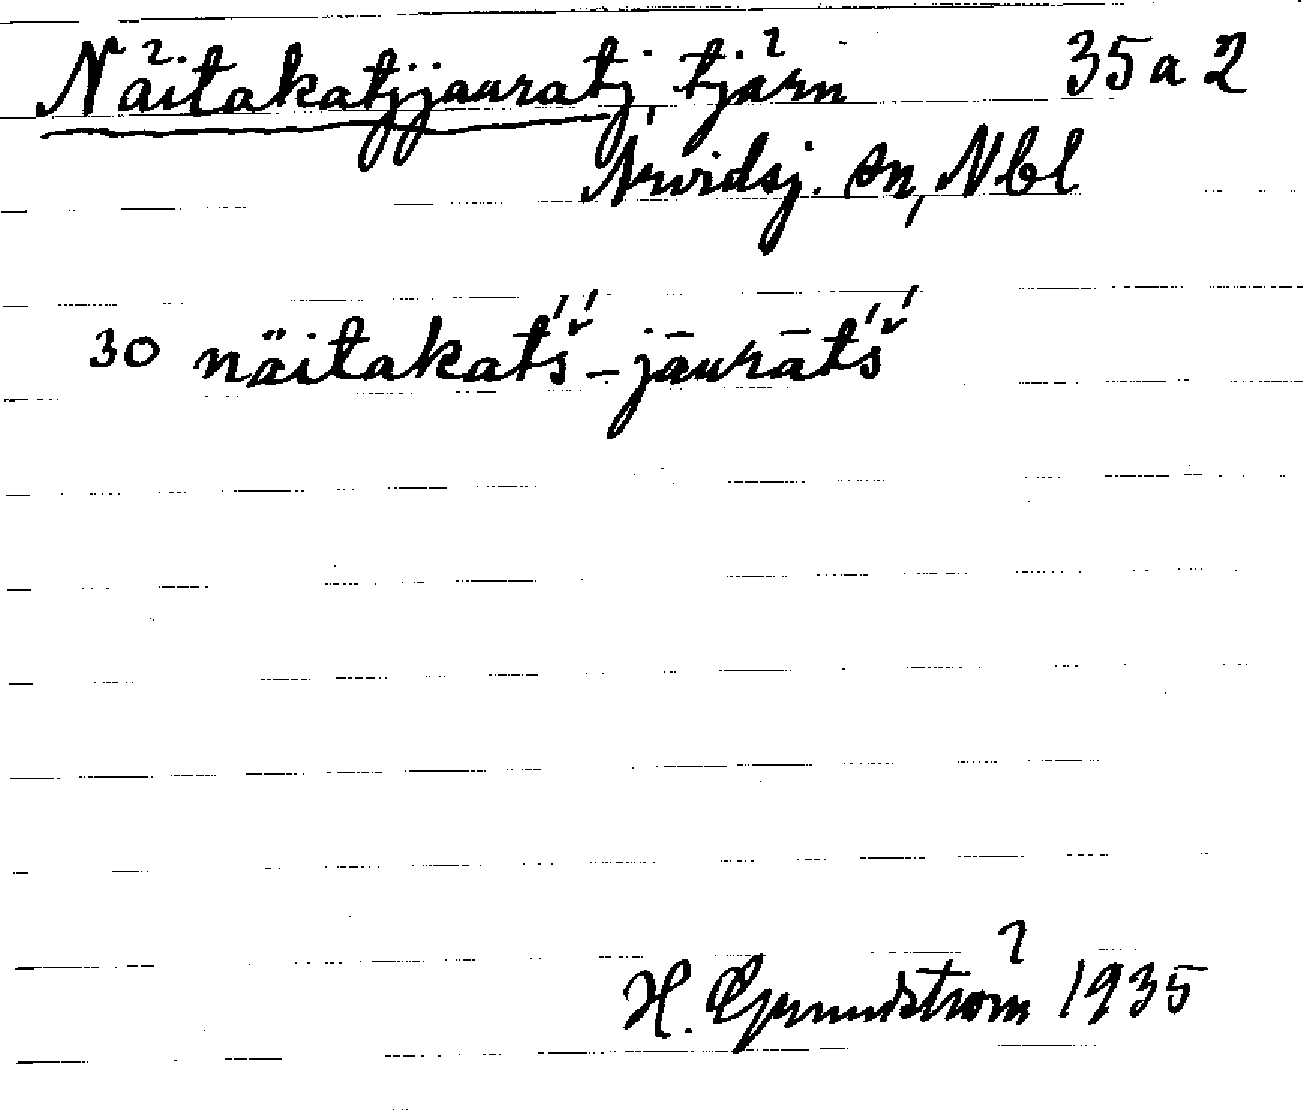 Näitakatjjauratj, tjärn 35 a 2
Arvidsj. sn, Nbl
30 näitakat́š́ - jāurāt́š́
H. Grundström 1935